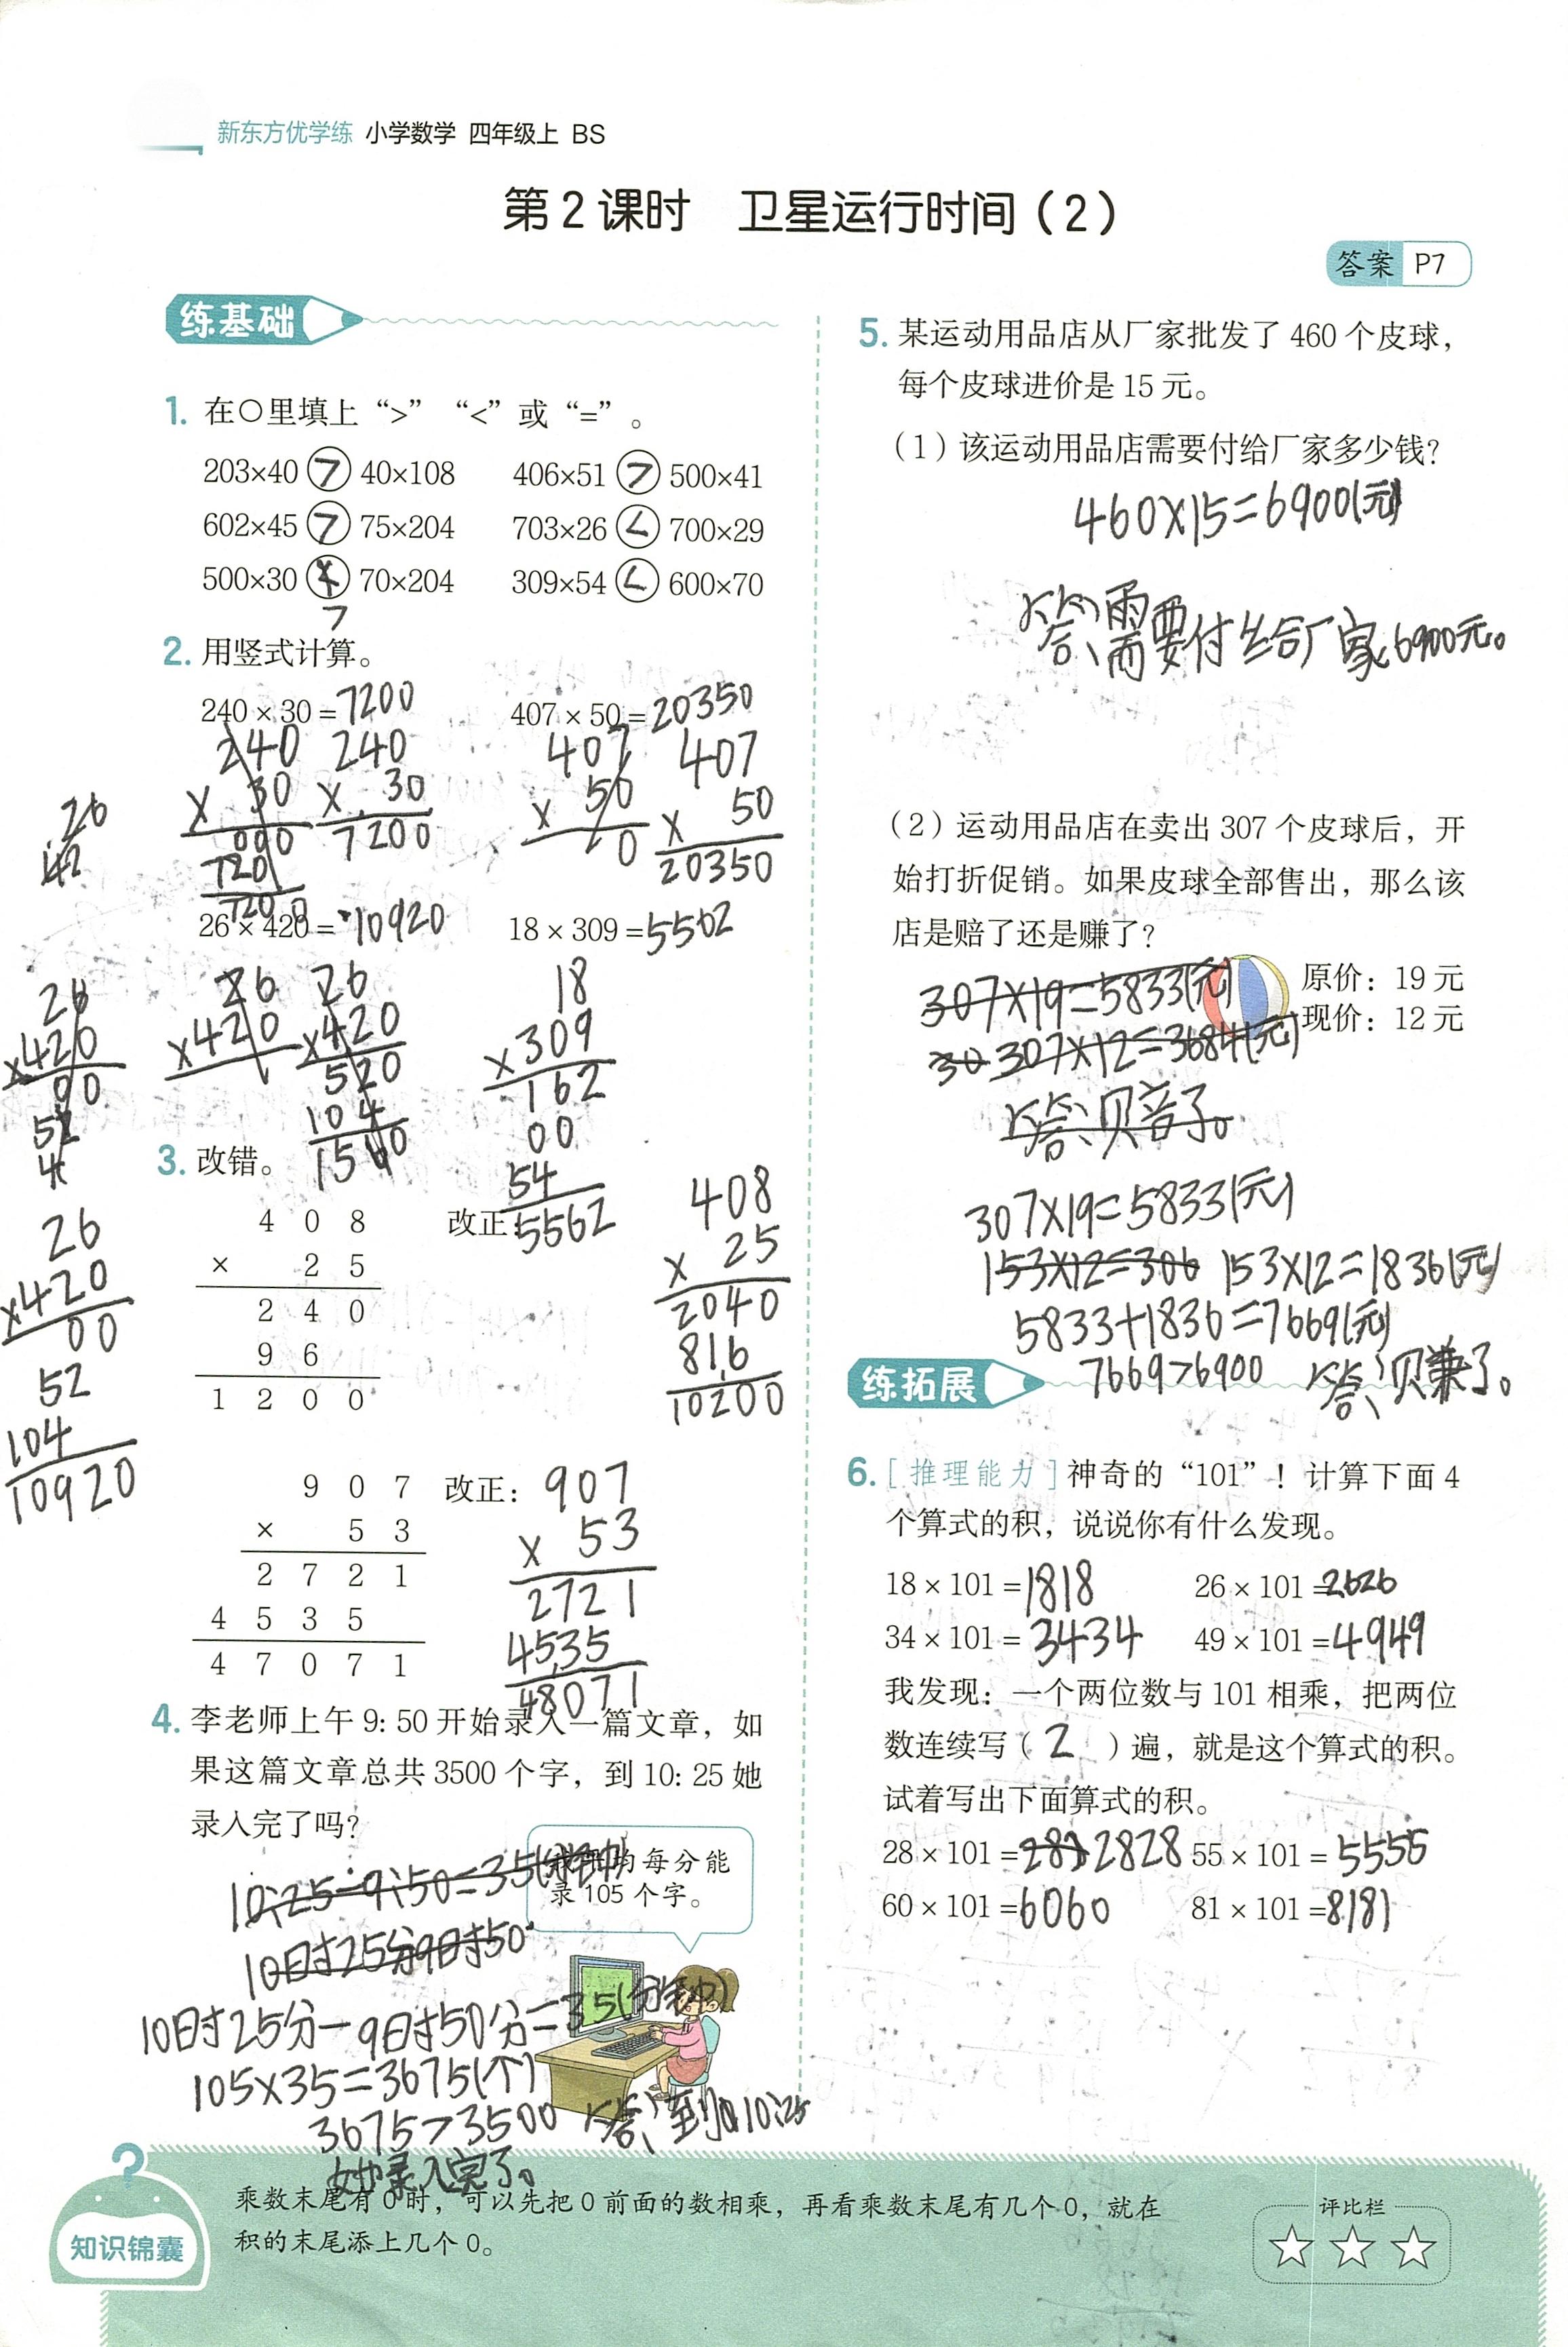 新东方优学练 小学数学 四年级上 BS
第2课时 卫星运行时间(2)
答案 P7
练基础
1. 在○里填上“>”“<”或“=”。
203×40 > 40×108 406×51 > 500×41
602×45 > 75×204 703×26 < 700×29
500×30 70×204 309×54 < 600×70
>
2. 用竖式计算。
240×30=7200 407×50=20350
240 240 407 407
× 30 × 30 × 50 × 50
000 7200 0 20350
720
7200
26
42
26×420=10920 18×309=5562
26 26 26 18
×420 ×420 ×420 ×309
00 520 162
52 104 00
4 1560 54
5562
26
×420
00
52
104
10920
3. 改错。
4 0 8 改正: 408
× 2 5 × 25
2 4 0 2040
9 6 816
1 2 0 0 10200
9 0 7 改正: 907
× 5 3 × 53
2 7 2 1 2721
4 5 3 5 4535
4 7 0 7 1 48071
4. 李老师上午9:50开始录入一篇文章,如
果这篇文章总共3500个字,到10:25她
录入完了吗?
我平均每分能
录105个字。
10:25-9:50=35(分钟)
10时25分9时50
10时25分-9时50分=35(分钟)
105×35=3675(个)
3675>3500 答:到10:25
她录入完了。
5. 某运动用品店从厂家批发了460个皮球,
每个皮球进价是15元。
(1)该运动用品店需要付给厂家多少钱?
460×15=6900(元)
答:需要付给厂家6900元。
(2)运动用品店在卖出307个皮球后,开
始打折促销。如果皮球全部售出,那么该
店是赔了还是赚了?
原价:19元
现价:12元
307×19=5833(元)
30 307×12=3684(元)
答:赔了。
307×19=5833(元)
153×12=306 153×12=1836(元)
5833+1836=7669(元)
7669>6900 答:赚了。
练拓展
6. [推理能力]神奇的“101”!计算下面4
个算式的积,说说你有什么发现。
18×101=1818 26×101=2626
34×101=3434 49×101=4949
我发现:一个两位数与101相乘,把两位
数连续写( 2 )遍,就是这个算式的积。
试着写出下面算式的积。
28×101=2828 55×101=5555
60×101=6060 81×101=8181
知识锦囊
乘数末尾有0时,可以先把0前面的数相乘,再看乘数末尾有几个0,就在
积的末尾添上几个0。
评比栏